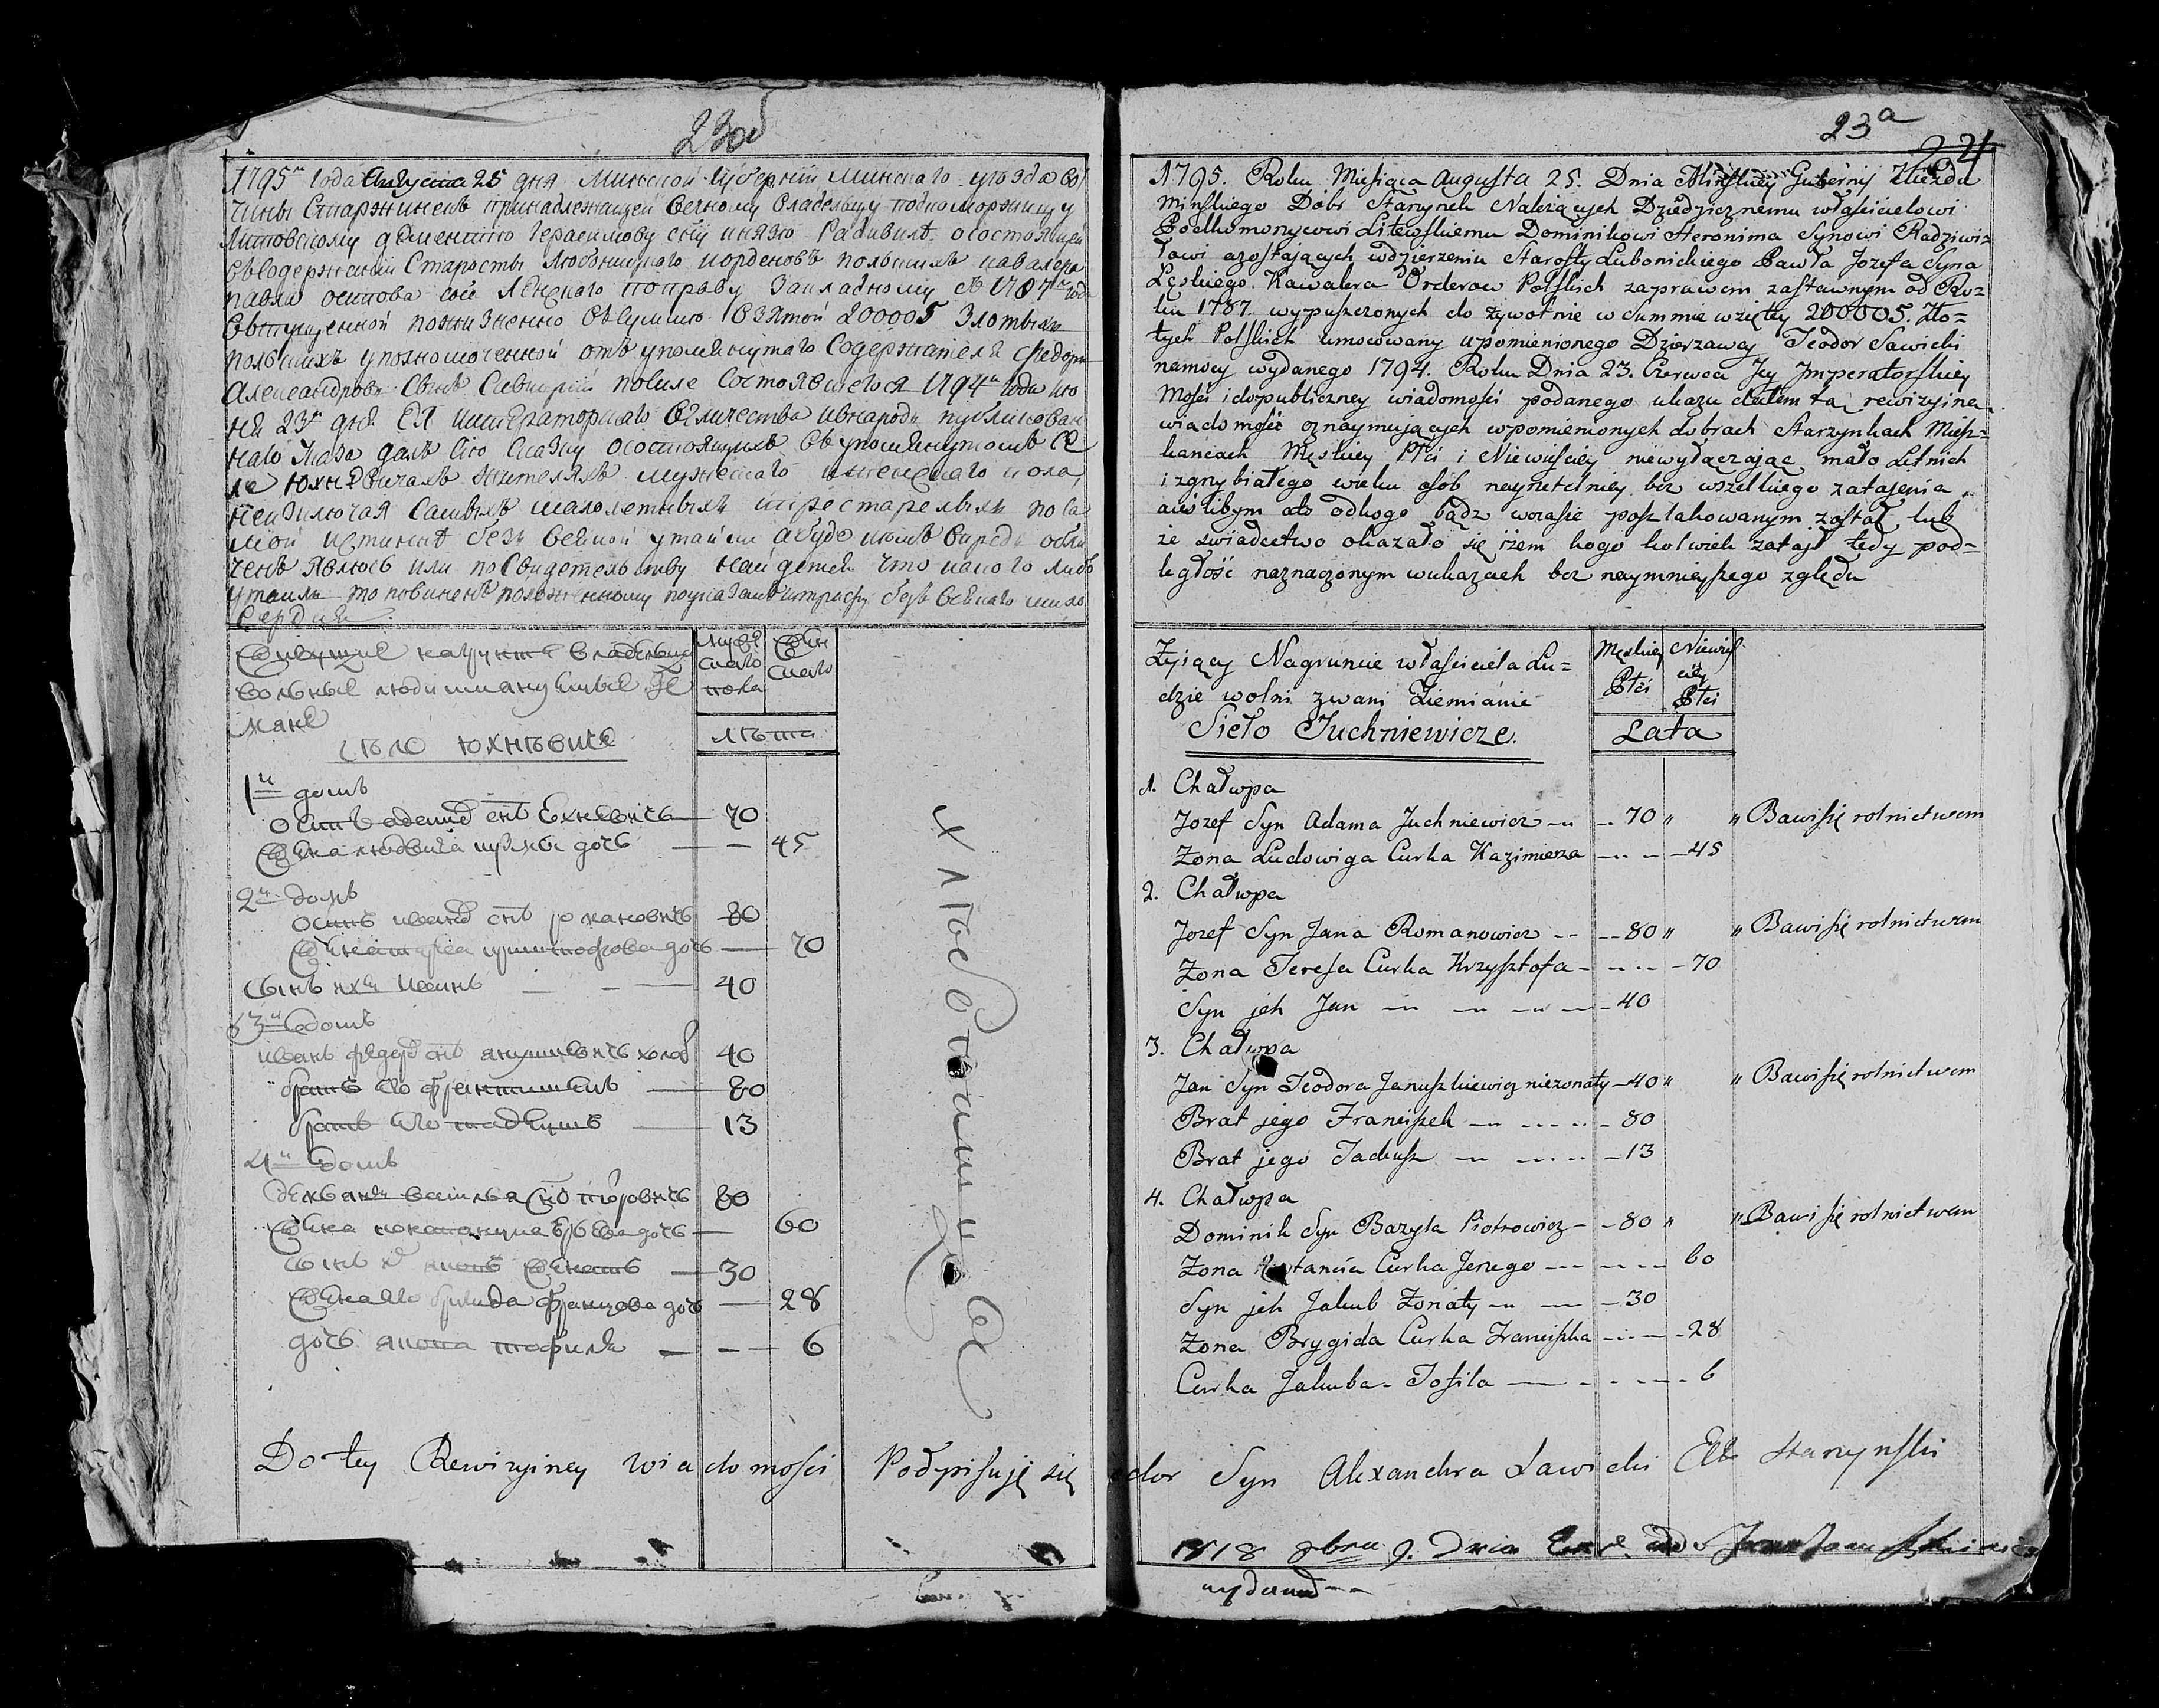 23об
1795го года Августа 25 дня Минской Губернии Минского уезда во
чины Старжинекъ принадлежащей вечному владельцу подкоморжицу
Литовскому доменику Герасимову сну князю Радивилъ
Содержании Старосты Любоницкого иорденовъ польскихъ кавалера
павла осипова сна Ленского поправу Закладному съ 1787го года
200005 злотыхъ
польскихъ уполномоченной отъ упомянутаго Содержателя федоръ
Александровъ Сынъ Савицкий посиле Состоявшегося 1794го года ию
ня 23го дня Ея императорского величества ивнароды публикован
наго указа далъ Сию Сказку осостоящихъ въ упомянутомъ Се
ле Юхневичахъ жителяхъ мужескаго иженскаго пола,
неизключая Самыхъ малолетныхъ ипрестарелыхъ по са
мой истинне безъ всякой утайки
ченъ явлюсь или по Свидетельству найдется что какого либо
утаилъ то повиненъ положенному безъ всякаго мило
Сердия.
Живущие нагрунте владельца
вольные люди имянуемые Зе
мяне
Мужескаго пола
Женскаго
лета
село юхневиче
1й домъ
осипъ адамд снъ юхневичъ 70
Жена людвига дочь 45
2й домъ
осипъ иванд снъ романовичъ 80
Жена криштофова дочь 70
Сынъ ихъ иванъ 40
3й домъ
иванъ федорд снъ янушкевичъ холос 40
братъ его францишекъ 80
братъ его тадеушъ 13
4й домъ
васильд снъ 80
Жена дочь 60
Сынъ женатъ 30
Жена его францова дочь 28
дочь якова тофиля 6
хлебопашцове
Do tey Rewizyiney wiadomości Podpisuję się
23a
24
1795. Roku Miesiąca Augusta 25. Dnia Minskiey Guberny Uiezdu
Minskiego Dobr Starynek Nalezących Dziedzicznemu właścicielowi
Podkomorzycowi Litewskiemu Dominikowi Heronima Synowi Radziwi=
łowi azostających wdzierzeniu Starosty Lubonickiego Pawła Jozefa Syna
Lęskiego Kawalera Orderow Polskich zaprawem zastawnym od Ro=
ku 1787. wypuszczonych do zywotnie w Summie wzięty 200005. Zło=
tych Polskich umocowany upomienionego Dzierzawcy Teodor Sawicki
namocy wydanego 1794. Roku Dnia 23. Czerwca Jey Imperatorskiey
Mości idopubliczney wiadomości podanego ukazu dałem tą rewizyiną
wiadomość oznaymujących wpomienionych dobrach Starzynkach Miesz=
kancach Męskiey Płci i Niewiesciey niewyłączając mało Letnich
i zgrzybiałego wieku osób nayrzetelniey bez wszelkiego zatajenia
aiezlibym od kogo bądz wczasie poszlakowanym został lub
ze swiadectwo okazało się zem kogo kolwiek zataił tedy pod=
ległość naznaczonym wukazach bez naymnieyszego zględu
Zyiący Nagruncie właściciela Lu=
dzie wolni zwani Ziemianie
Sieło Juchniewicze.
Męskiey Płci
Niewieściey Płci
Lata
1. Chałupa
Jozef Syn Adama Juchniewicz 70 " " Bawi się rolnictwem
Zona Ludowiga Curka Kazimierza 45
2. Chałupa
Jozef Syn Jana Romanowicz 80 " " Bawi się rolnictwem
Zona Teresa Curka Krzysztofa 70
Syn jch Jan 40
3. Chałupa
Jan Syn Teodora Januszkiewicz niezonaty 40 " " Bawi się rolnictwem
Brat jego Franciszek 80
Brat jego Tadeusz 13
4. Chałupa
Dominik Syn Bazyla Piotrowicz 80 " " Bawi się rolnictwem
Zona Curka Jerzego 60
Syn jch Jakub Zonaty 30
Zona Brygida Curka Franciszka 28
Curka Jakuba Tofila 6
odor Syn Alexandra Sawicki Starzynski
1818 8bra 9. Dnia
wydana